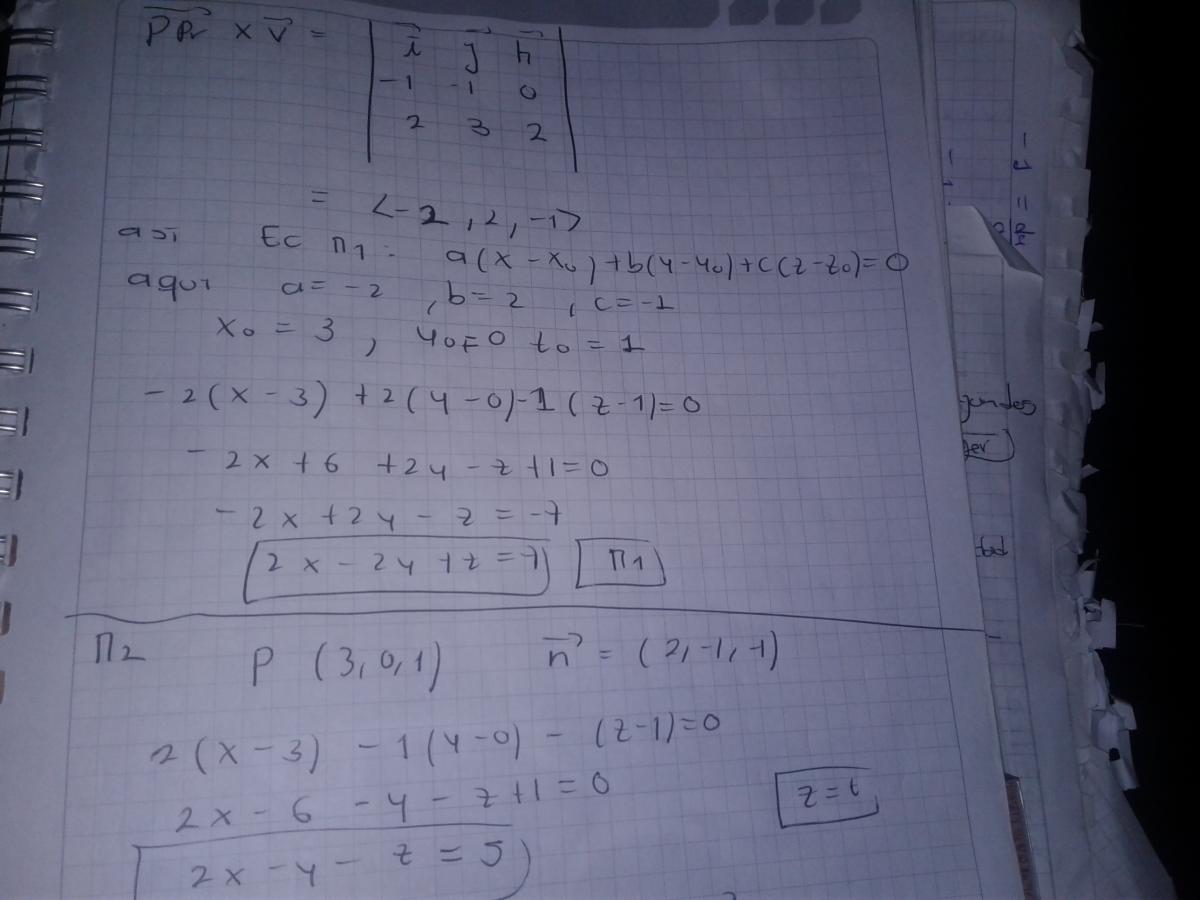 PR × v =
i j k
-1 -1 0
2 3 2
= <-2, 2, -1>
así Ec Π1: a(x-x₀)+b(y-y₀)+c(z-z₀)=0
aquí a=-2, b=2, c=-1
x₀=3, y₀=0 z₀=1
-2(x-3)+2(y-0)-1(z-1)=0
-2x+6+2y-z+1=0
-2x+2y-z=-7
2x-2y+z=7 Π1
Π2 P(3,0,1) n=(2,-1,-1)
2(x-3)-1(y-0)-(z-1)=0
2x-6-y-z+1=0
z=t
2x-y-z=5